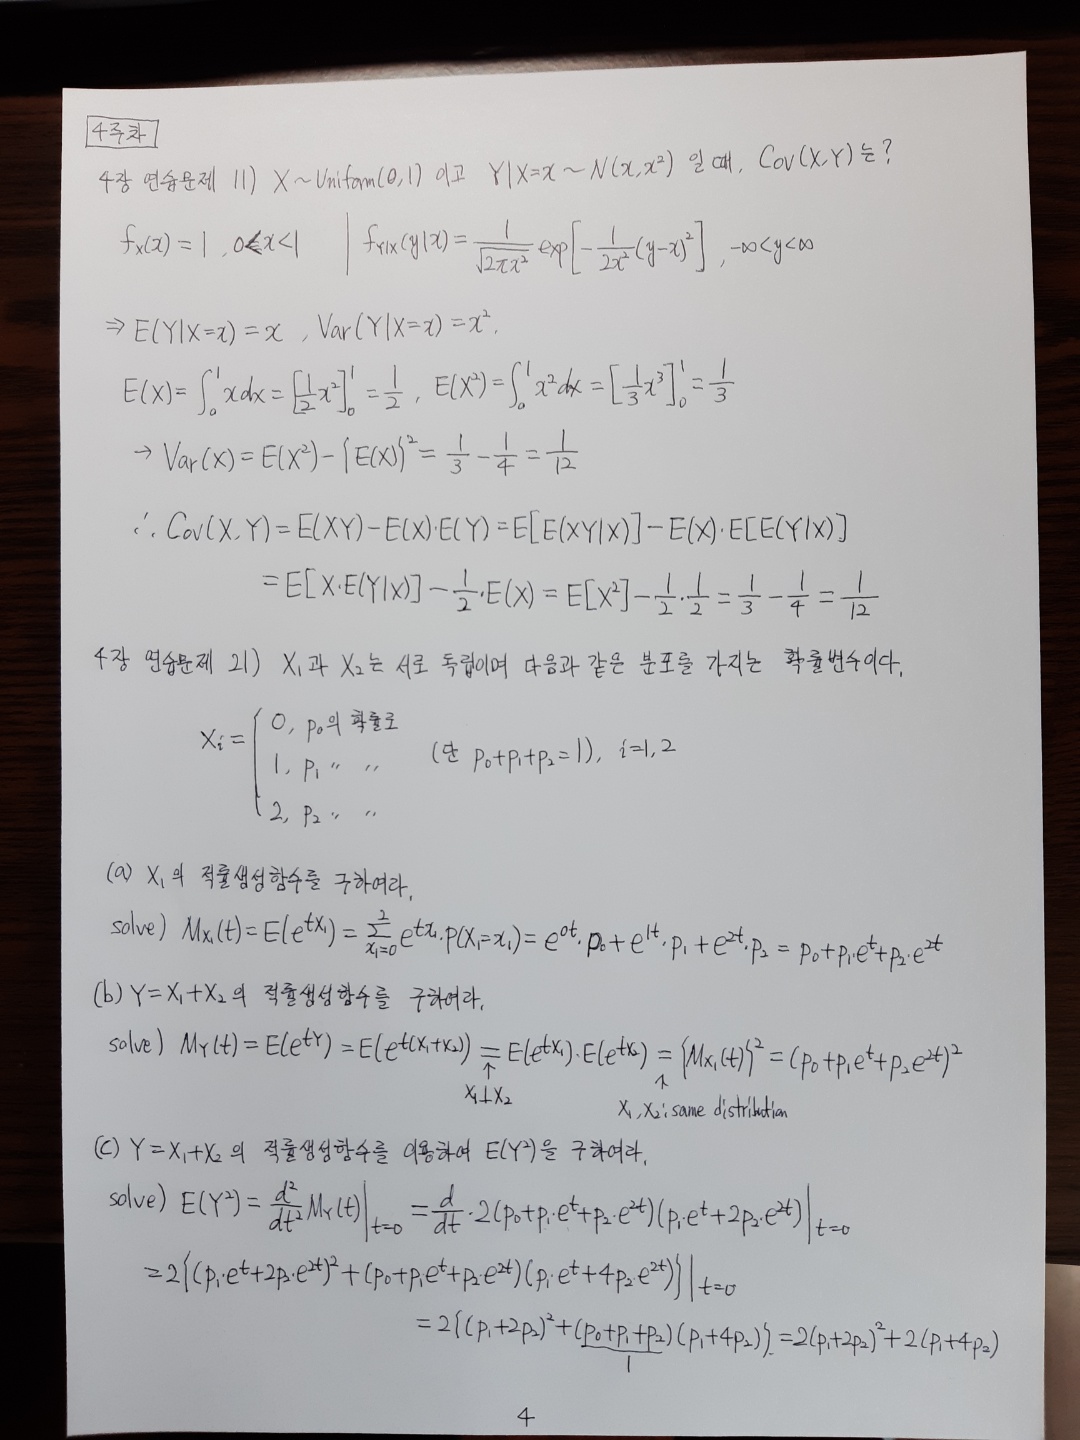 4주차
4장 연습문제 11) X~Uniform(0,1) 이고 Y|X=x ~ N(x,x²) 일 때, Cov(X,Y)는?
fx(x) = 1, 0<x<1 | fY|X(y|x) = 1/√(2πx²) exp[-1/(2x²) (y-x)²], -∞<y<∞
⇒ E(Y|X=x) = x, Var(Y|X=x) = x².
E(X) = ∫₀¹ xdx = [1/2 x²]₀¹ = 1/2, E(X²) = ∫₀¹ x²dx = [1/3 x³]₀¹ = 1/3
→ Var(X) = E(X²) - {E(X)}² = 1/3 - 1/4 = 1/12
∴ Cov(X,Y) = E(XY) - E(X)·E(Y) = E[E(XY|X)] - E(X)·E[E(Y|X)]
= E[X·E(Y|X)] - 1/2·E(X) = E[X²] - 1/2·1/2 = 1/3 - 1/4 = 1/12
4장 연습문제 21) X₁과 X₂는 서로 독립이며 다음과 같은 분포를 가지는 확률변수이다.
Xi = { 0, p₀의 확률로
1, p₁ 〃 〃 (단 p₀+p₁+p₂=1), i=1,2
2, p₂ 〃 〃
(a) X₁의 적률생성함수를 구하여라.
solve) Mx₁(t) = E(e^{tX₁}) = Σ_{x₁=0}^{2} e^{tx₁}·P(X₁=x₁) = e^{0t}·p₀ + e^{1t}·p₁ + e^{2t}·p₂ = p₀+p₁·e^t+p₂·e^{2t}
(b) Y=X₁+X₂의 적률생성함수를 구하여라.
solve) MY(t) = E(e^{tY}) = E(e^{t(X₁+X₂)}) = E(e^{tX₁})·E(e^{tX₂}) = {Mx₁(t)}² = (p₀+p₁e^t+p₂e^{2t})²
↑ ↑
X₁⊥X₂ X₁, X₂: same distribution
(c) Y=X₁+X₂의 적률생성함수를 이용하여 E(Y²)을 구하여라.
solve) E(Y²) = d²/dt² MY(t)|t=0 = d/dt·2(p₀+p₁·e^t+p₂·e^{2t})(p₁·e^t+2p₂·e^{2t})|t=0
= 2{(p₁·e^t+2p₂·e^{2t})²+(p₀+p₁e^t+p₂e^{2t})(p₁·e^t+4p₂e^{2t})}|t=0
= 2{(p₁+2p₂)²+(p₀+p₁+p₂)(p₁+4p₂)} = 2(p₁+2p₂)²+2(p₁+4p₂)
1
4